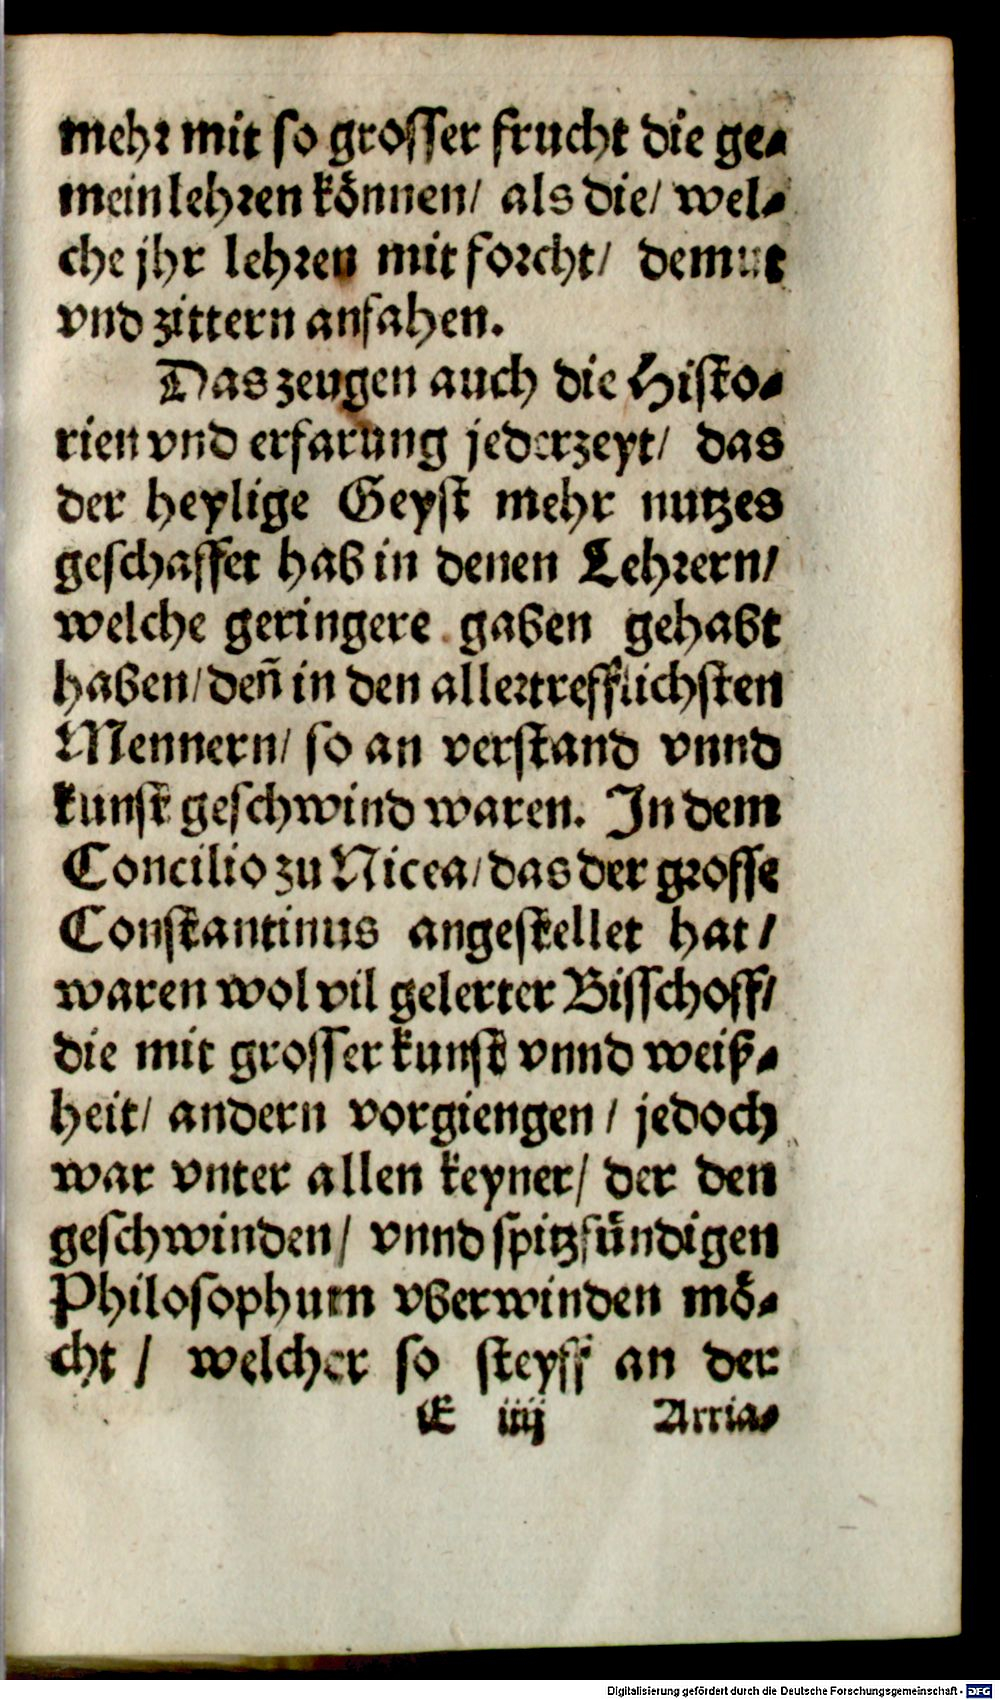 mehr mit so grosser frucht die ge-
mein lehren können/ als die/ wel-
che jhr lehren mit forcht/ demut
vnd zittern anfahen.
Das zeugen auch die Histo-
rien vnd erfarung jederzeyt/ das
der heylige Geyst mehr nutzes
geschaffet hab in denen Lehrern/
welche geringere gaben gehabt
haben/ deñ in den allertrefflichsten
Mennern/ so an verstand vnnd
kunst geschwind waren. In dem
Concilio zu Nicea/ das der grosse
Constantinus angestellet hat/
waren wol vil gelerter Bisschoff/
die mit grosser kunst vnnd weiß-
heit/ andern vorgiengen/ jedoch
war vnter allen keyner/ der den
geschwinden/ vnnd spitzfündigen
Philosophum vberwinden mö-
cht/ welcher so steyff an der
E iiij Arria-
Digitalisierung gefördert durch die Deutsche Forschungsgemeinschaft - DFG